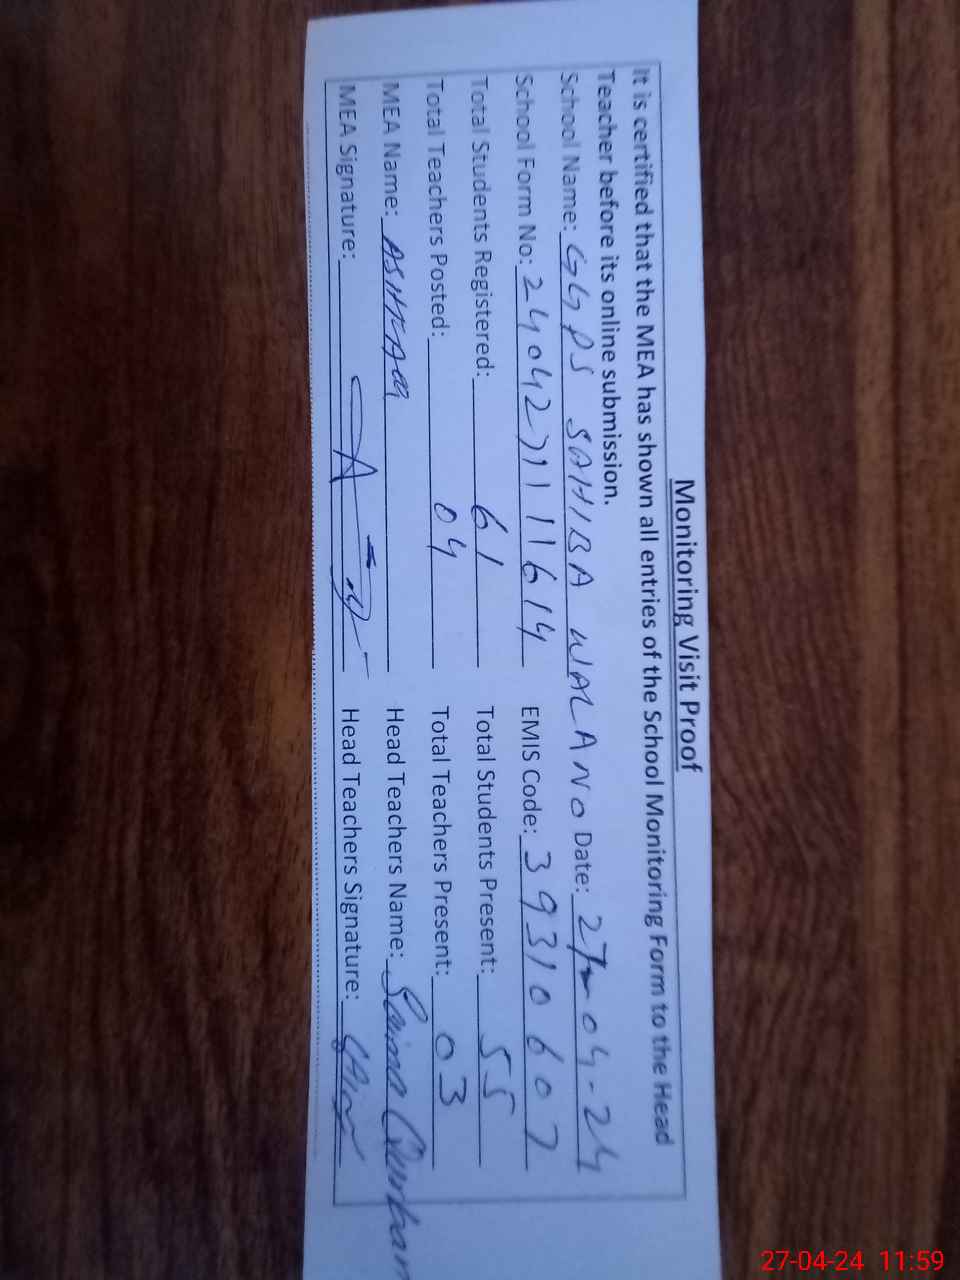 Monitoring Visit Proof
It is certified that the MEA has shown all entries of the School Monitoring Form to the Head
Teacher before its online submission.
School Name: GGPS SAHIBA WALANO Date: 27-04-24
School Form No: 2404271111614 EMIS Code: 39310607
Total Students Registered: 61 Total Students Present: 55
Total Teachers Posted: 04 Total Teachers Present: 03
MEA Name: Head Teachers Name: Saima Qurban
MEA Signature: Head Teachers Signature:
27-04-24 11:59